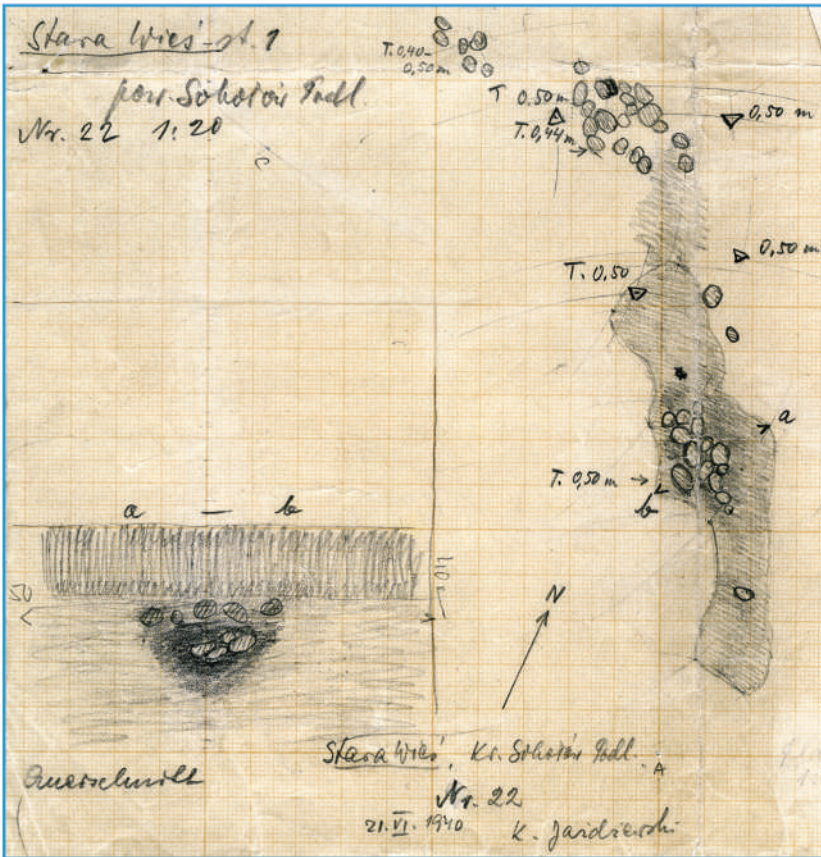 Stara Wieś - st. 1
pow. Sokołów Podl.
Nr. 22 1:20
T. 0,40-
0,50 m
T 0.50 m
T. 0,44 m
0,50 m
0,50 m
T. 0.50
a
T. 0,50 m
b
a — b
50
40
N
Querschnitt
Stara Wieś, Kr. Sokołów Podl.
A
Nr. 22
21. VI. 1940
K. Jażdżewski